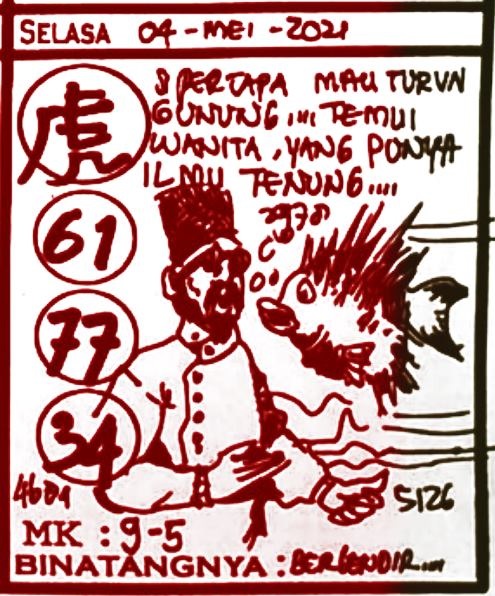 SELASA 04-MEI-2021
虎
SI PERTAPA MAU TURUN
GUNUNG... TEMUI
WANITA, YANG PUNYA
ILMU TENUNG....
2978
61
77
34
5126
MK : 9-5
BINATANGNYA : BERLENDIR....